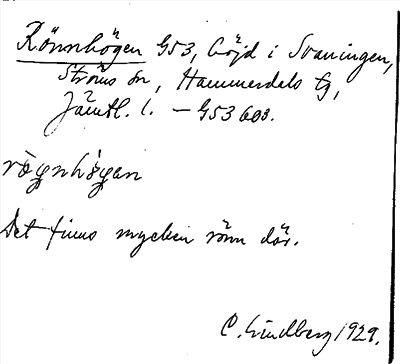 Rönnhögen G53, höjd i Svaningen,
Ströms sn, Hammerdals tg,
Jämtl. l. — G53 603.
rògnhø̀gan
Det finns mycken rönn där.
C. Lindberg 1929.